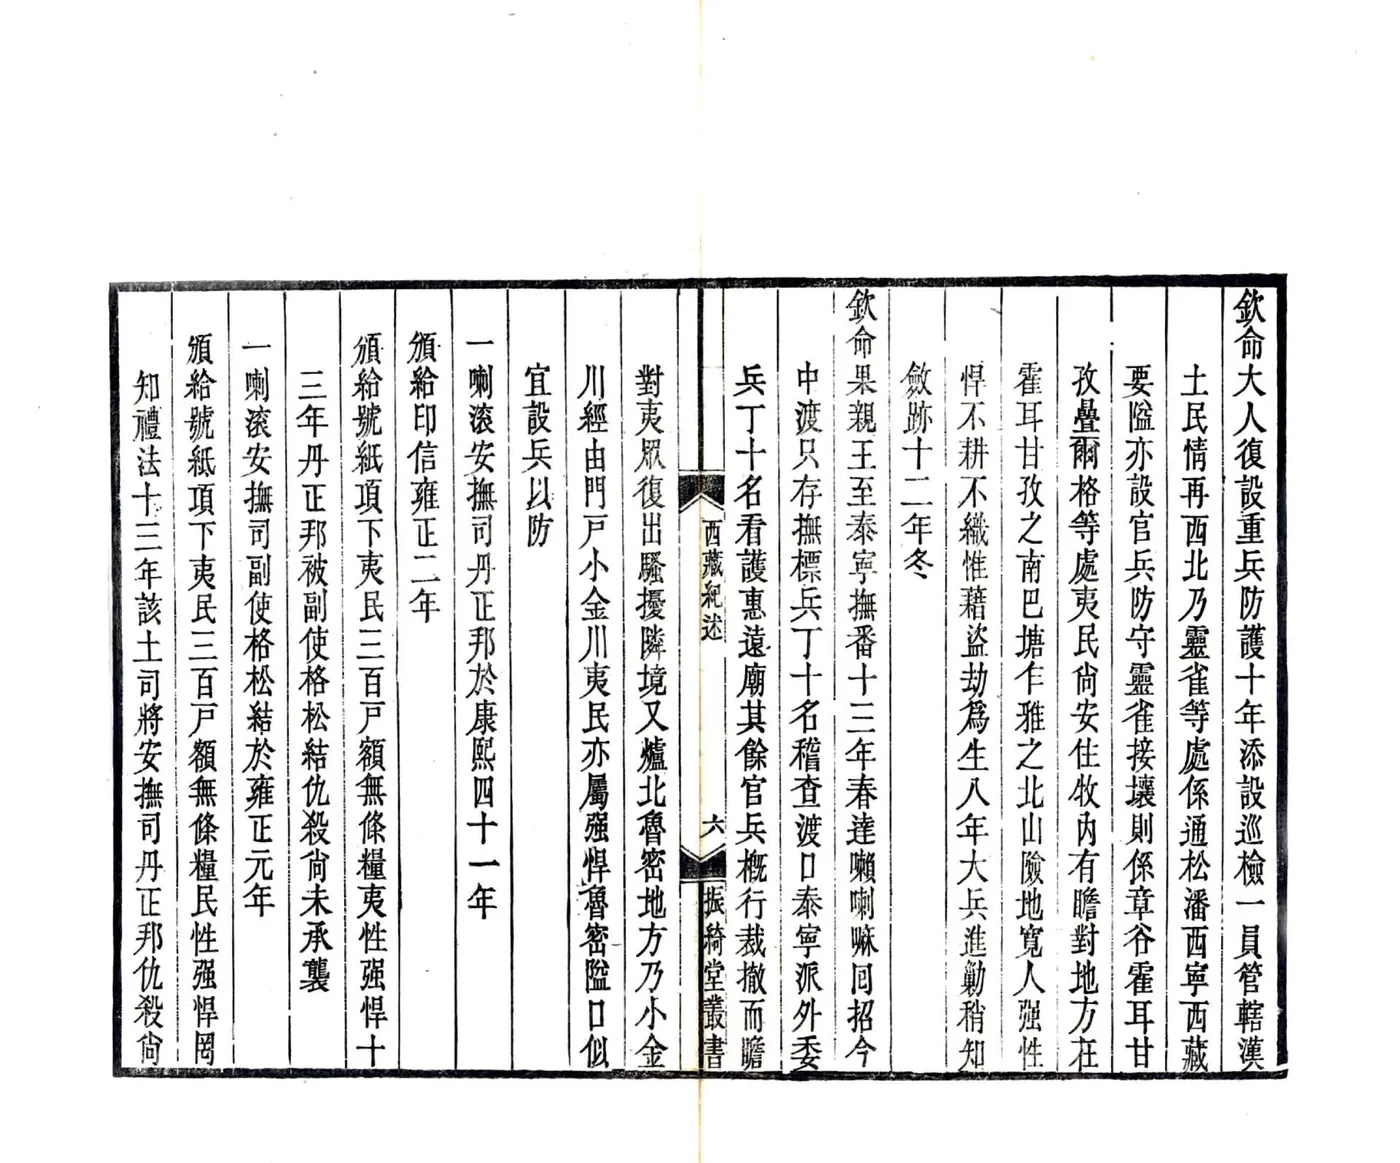 欽命大人復設重兵防護十年添設巡檢一員管轄漢
土民情再西北乃靈雀等處係通松潘西寧西藏
要隘亦設官兵防守靈雀接壤則係章谷霍耳甘
孜疊爾格等處夷民尙安住牧內有瞻對地方在
霍耳甘孜之南巴塘乍雅之北山險地寬人强性
悍不耕不織惟藉盜劫爲生八年大兵進勦稍知
斂跡十二年冬
欽命果親王至泰寧撫番十三年春達嚩喇嘛囘招今
中渡只存撫標兵丁十名稽查渡口泰寧派外委
兵丁十名看護惠遠廟其餘官兵槪行裁撤而瞻
西藏紀述
六
振綺堂叢書
對夷眾復出騷擾隣境又爐北魯密地方乃小金
川經由門戶小金川夷民亦屬强悍魯密隘口似
宜設兵以防
一喇滚安撫司丹正邦於康熙四十一年
頒給印信雍正二年
頒給號紙項下夷民三百戶額無條糧夷性强悍十
三年丹正邦被副使格松結仇殺尙未承襲
一喇滚安撫司副使格松結於雍正元年
頒給號紙項下夷民三百戶額無條糧民性强悍罔
知禮法十三年該土司將安撫司丹正邦仇殺尙